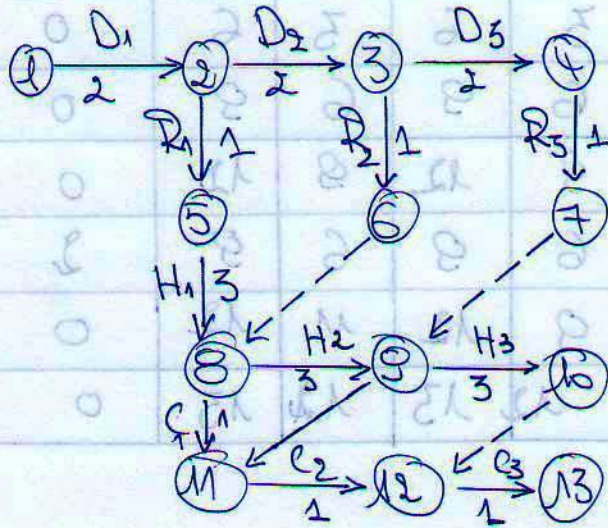 D1 D2 D3
1 2 2 2 3 2 4
R1 1 R2 1 R3 1
5 6 7
H1 3
8 H2 3 9 H3 3 10
C1 1
11 C2 1 12 C3 1 13